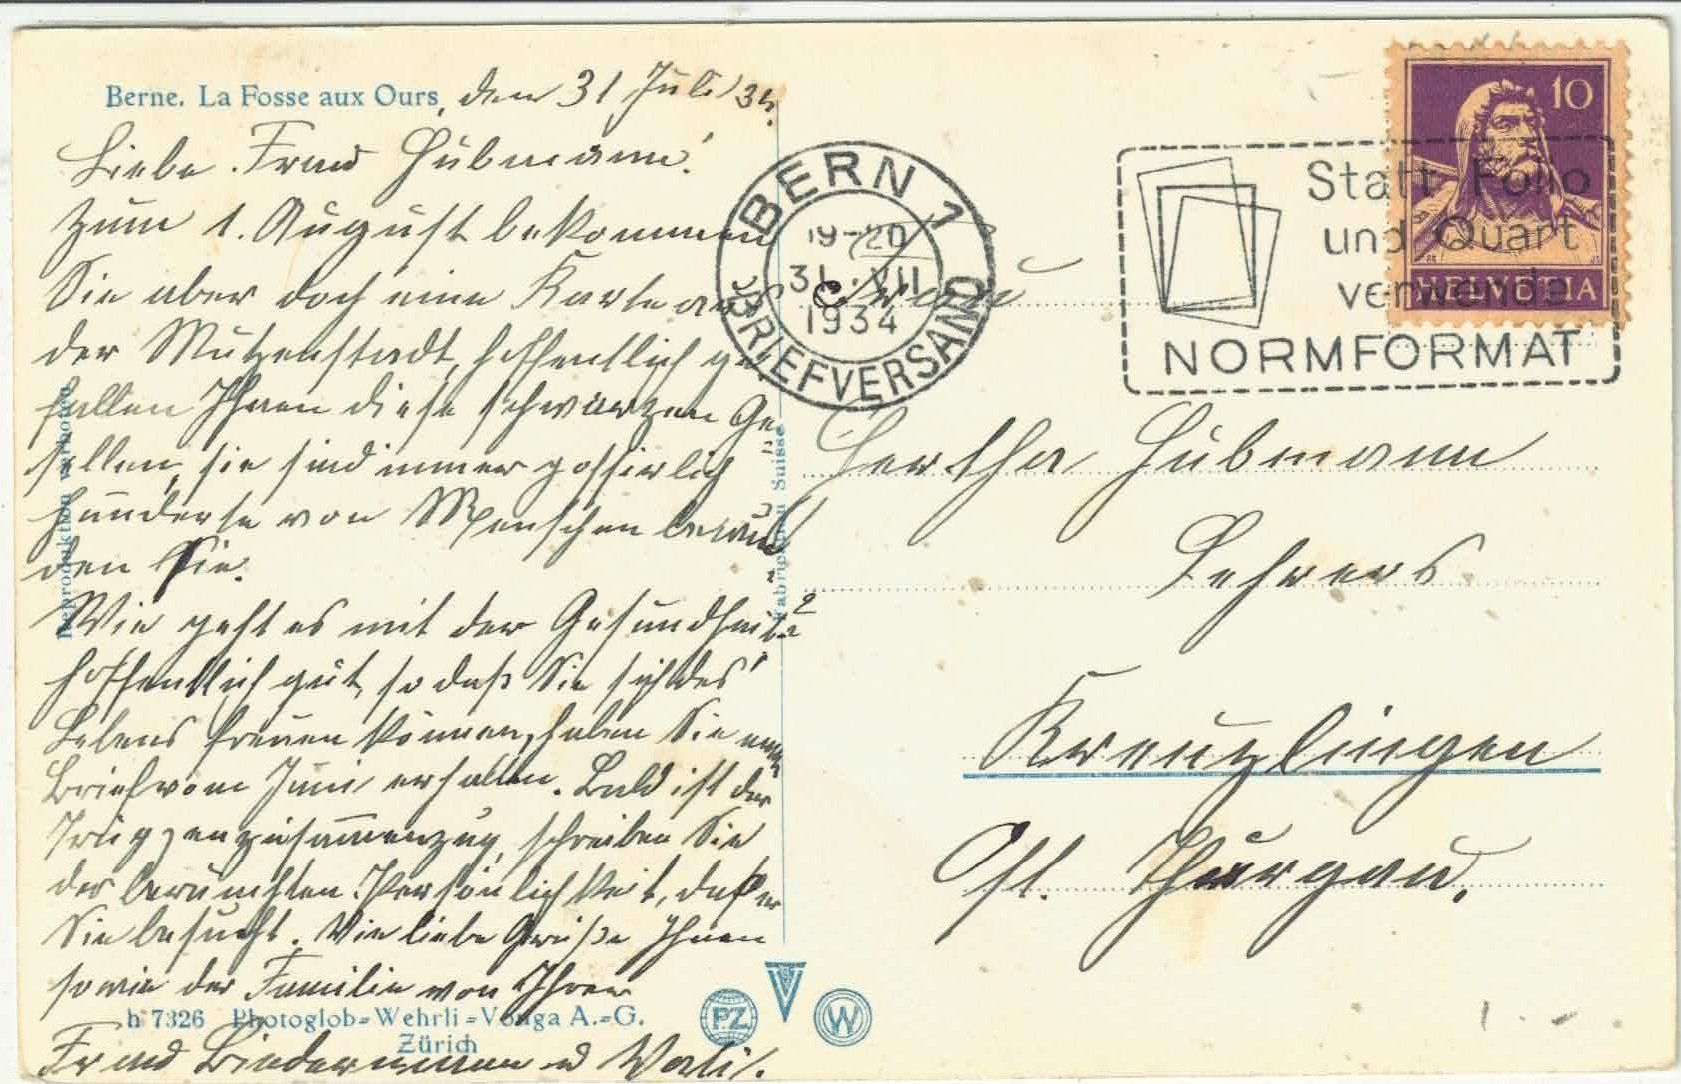 Berne. La Fosse aux Ours, den 31 Juli 34.
Liebe Frau Hübmann!
Zum 1. August bekommen
Sie aber doch eine Karte aus
der Mutzenstadt, hoffentlich ge
fallen Ihnen diese schwarzen Ge
sellen, sie sind immer possierlich
hunderte von Menschen bewun
den Sie.
Wie geht es mit der Gesundheit?
hoffentlich gut, so daß Sie sich des
Lebens freuen können, haben Sie
Brief vom Juni erhalten. Bald ist der
zusammenzug, schreiben Sie
der berümhten Persönlichkeit, daß er
Sie besucht. Viele liebe Grüße Ihnen
sowie der Familie von Ihrer
Frau Biedermann u Walti.
h 7326 Photoglob=Wehrli=Vouga A.=G.
Zürich
Reproduktion verboten
Fabrication Suisse
PZ
V
W
BERN 1
19-20
31.VII
1934
BRIEFVERSAND
Statt Folio
und Quart
verwende
NORMFORMAT
10
HELVETIA
Frau
Bertha Hübmann
Lehrers
Kreuzlingen
Kt. Thurgau.